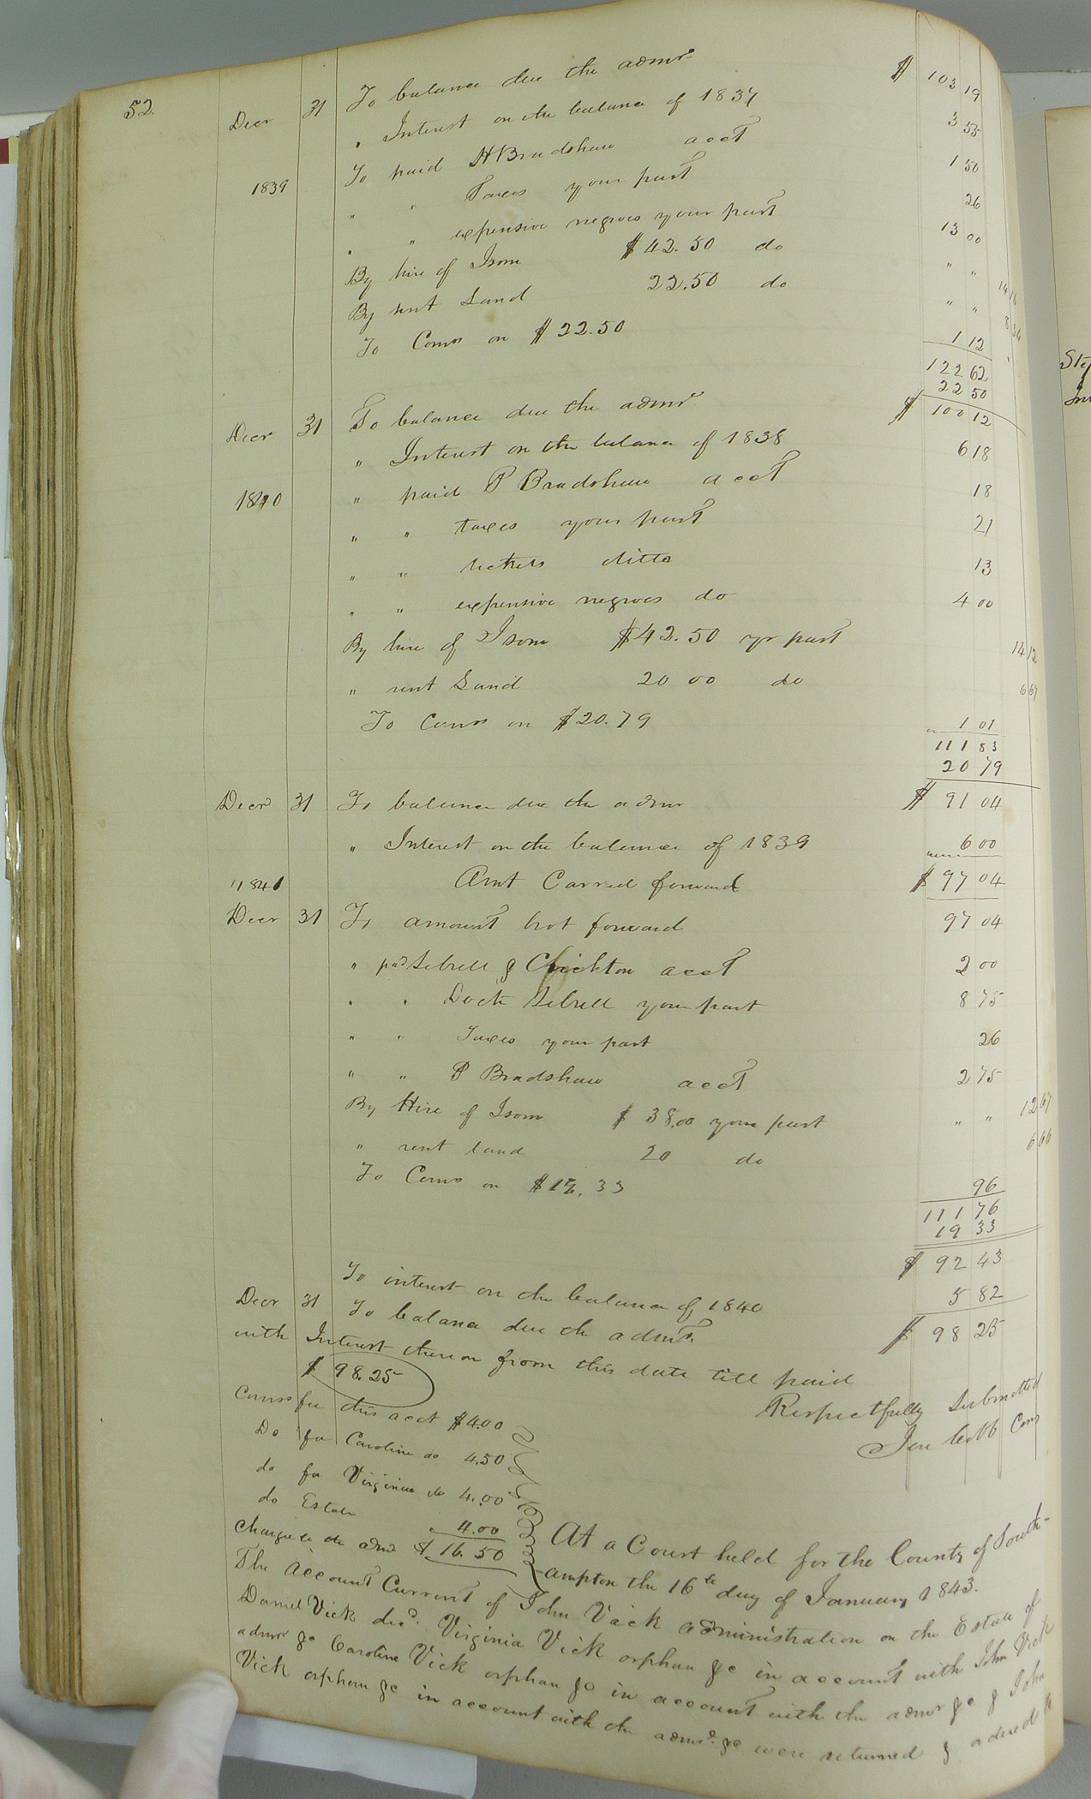 52
Decr 31 To balance due the admr $ 103 19
" Interest on the balance of 1837 3 55
1839 To paid H Bradshaw acct 1 50
" " Taxes your part 26
" " expensive negroes your part 13 00
By hire of Isom $42.50 do " " 14 16
By rent Land 22.50 do " " 8 34
To Coms on $22.50 1 12
122 62
22 50
Decr 31 To balance due the admr $ 100 12
" Interest on the balance of 1838 6 18
1840 " paid P Bradshaw acct 18
" " taxes your part 21
" " tickets ditto 13
" " expensive negroes do 4 00
By hire of Isom $42.50 yr part 14 12
" rent Land 20 00 do 6 67
To Coms on $20.79 1 01
111 83
20 79
Decr 31 To balance due the admr $ 91 04
" Interest on the balance of 1839 6 00
1841 Amt Carried forward $ 97 04
Decr 31 To amount brot forward 97 04
" pd Sebrell & Crichton acct 2 00
" " Doct Sebrell your part 8 75
" " Taxes your part 26
" " P Bradshaw acct 2 75
By Hire of Isom $ 38.00 your part " " 12 67
" rent land 20 do 6 66
To Coms on $19.33 96
111 76
19 33
$ 92 43
To interest on the balance of 1840 5 82
Decr 31 To balance due the admr $ 98 25
with Interest thereon from this date till paid
$ 98.25
Respectfully Submitted
Jere Cobb Com
Comss fee this acct $4.00
Do for Caroline do 4.50
do for Virginia do 4.00
do Estate 4.00
Charge to the admr $ 16.50
At a Court held for the County of South-
ampton the 16th day of January 1843.
The Account Current of John Vick administration on the Estate of
Daniel Vick decd. Virginia Vick orphan &c in account with John Vick
admr &c Caroline Vick orphan &c in account with the admr &c & John
Vick orphan &c in account with the admr. &c were returned & ordered